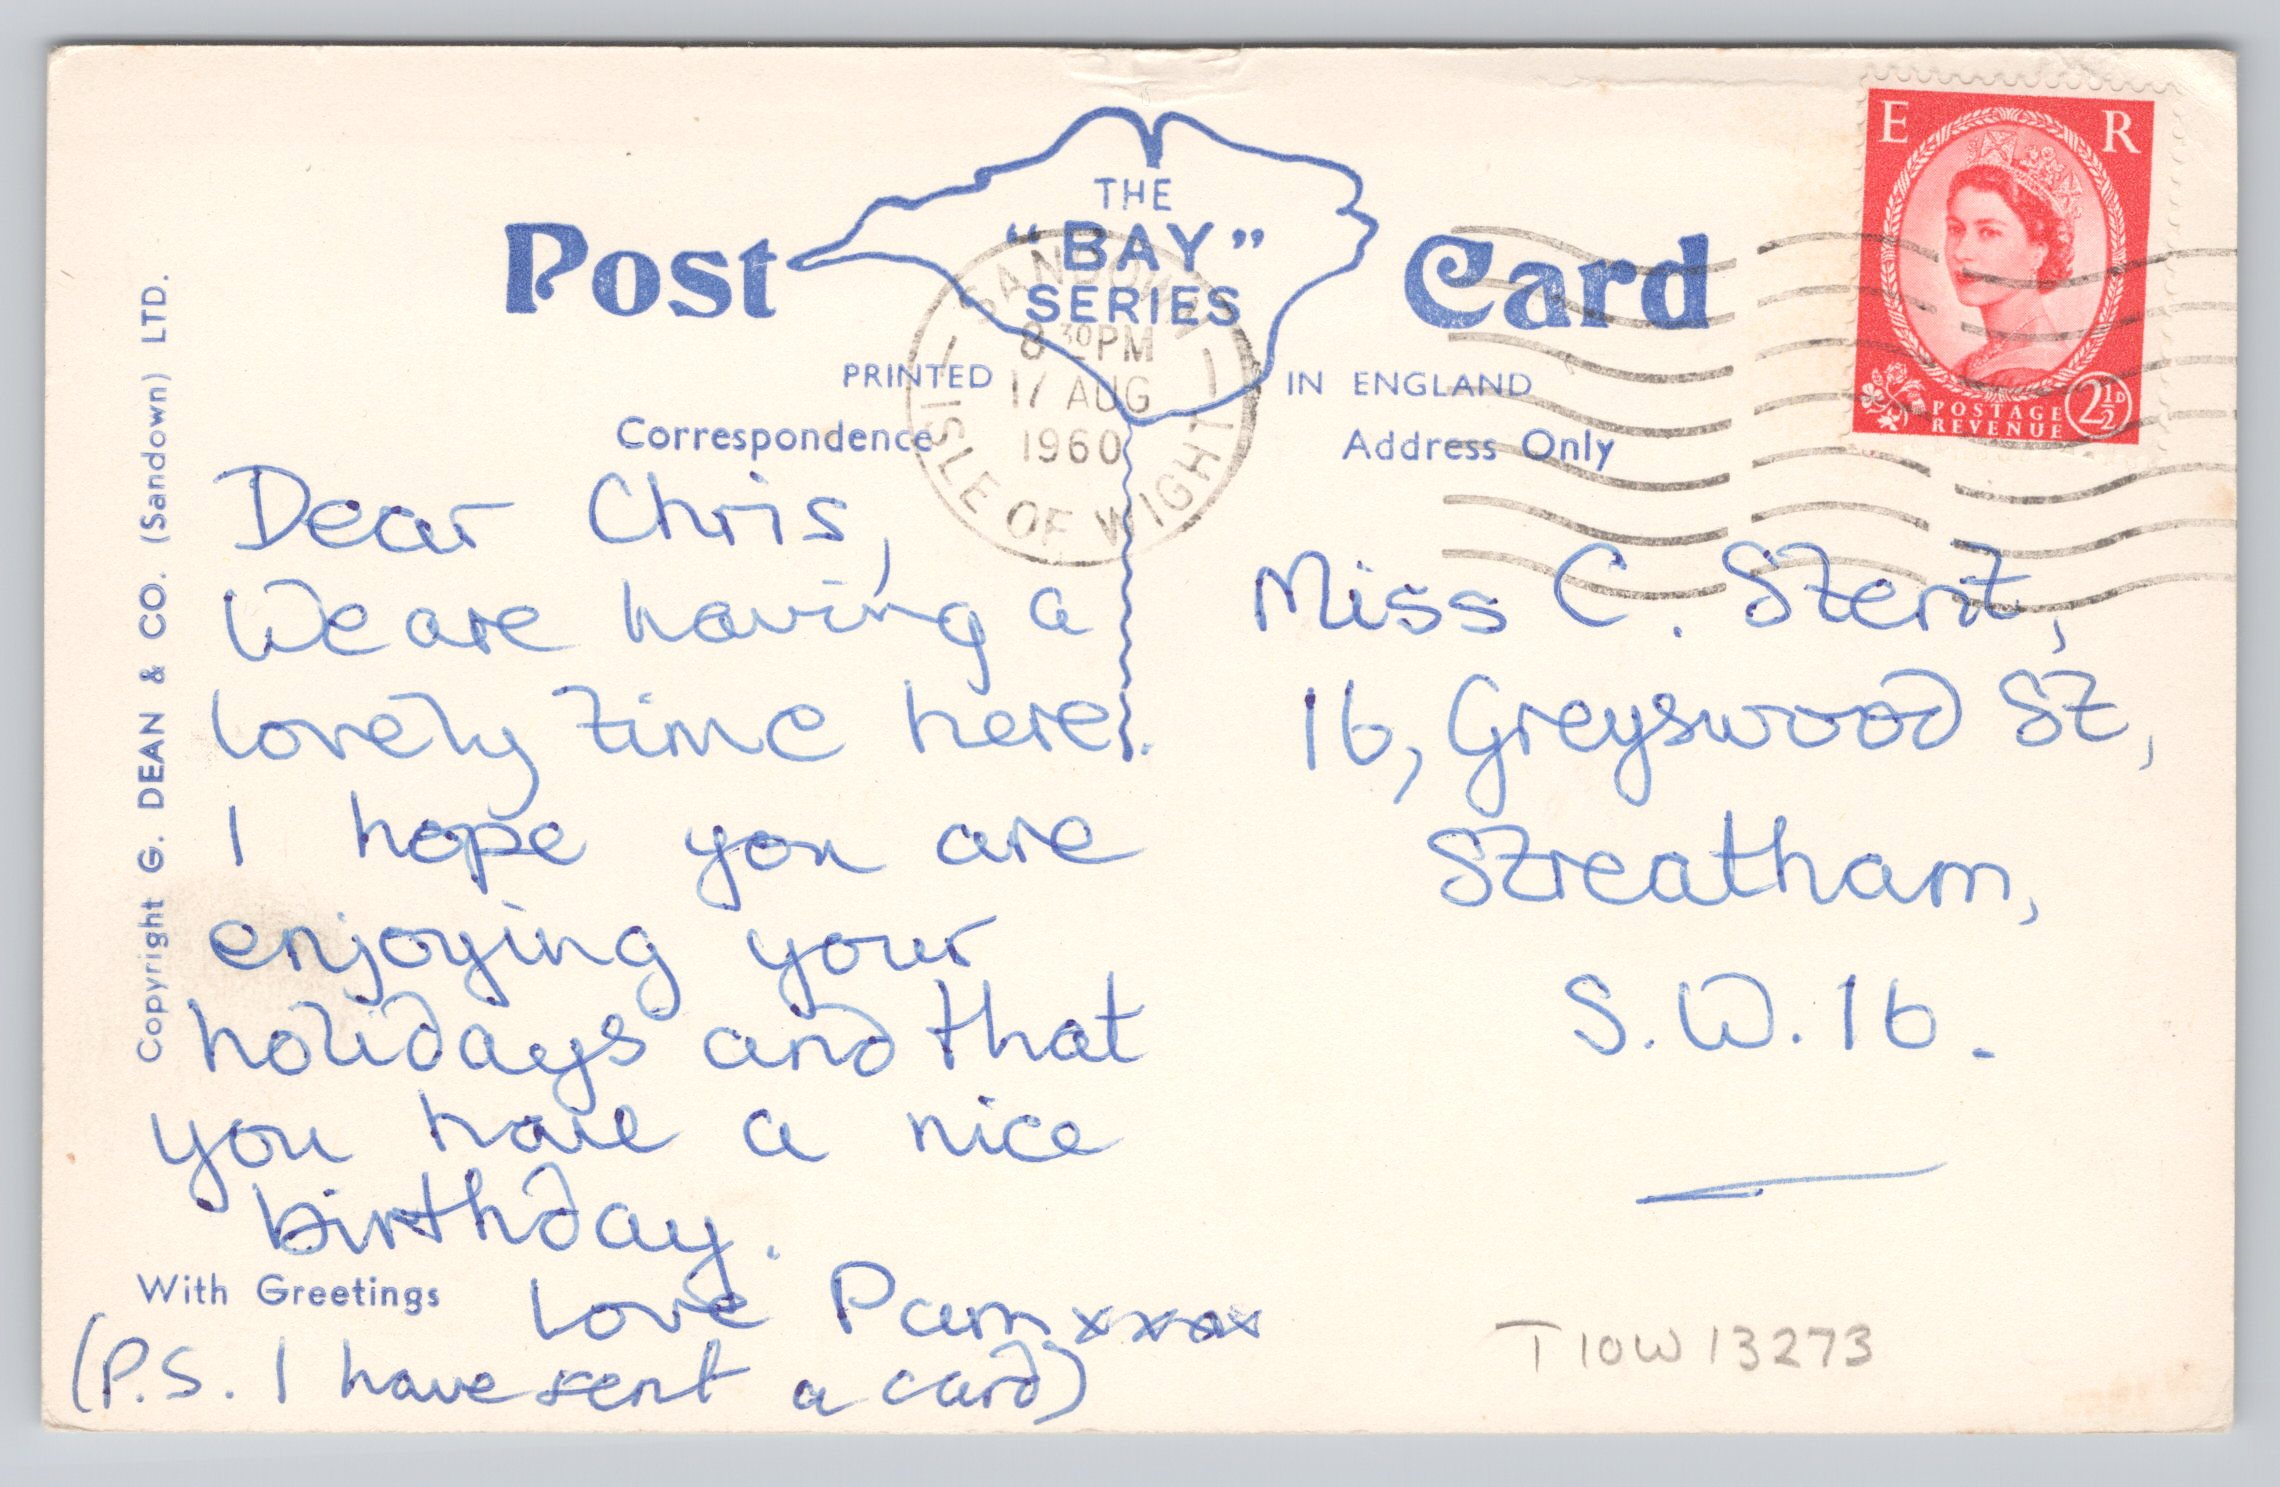 Post Card
THE
"BAY"
SERIES
PRINTED IN ENGLAND
Correspondence
Address Only
SANDOWN
8 30 PM
17 AUG
1960
ISLE OF WIGHT
E R
POSTAGE
REVENUE
2½D
Copyright G. DEAN & CO. (Sandown) LTD.
Dear Chris,
We are having a
lovely time here.
I hope you are
enjoying your
holidays and that
you have a nice
birthday.
With Greetings
Love Pam xxxx
(P.S. I have sent a card)
Miss C. Stent,
16, Greyswood St,
Streatham,
S.W.16.
T10W13273